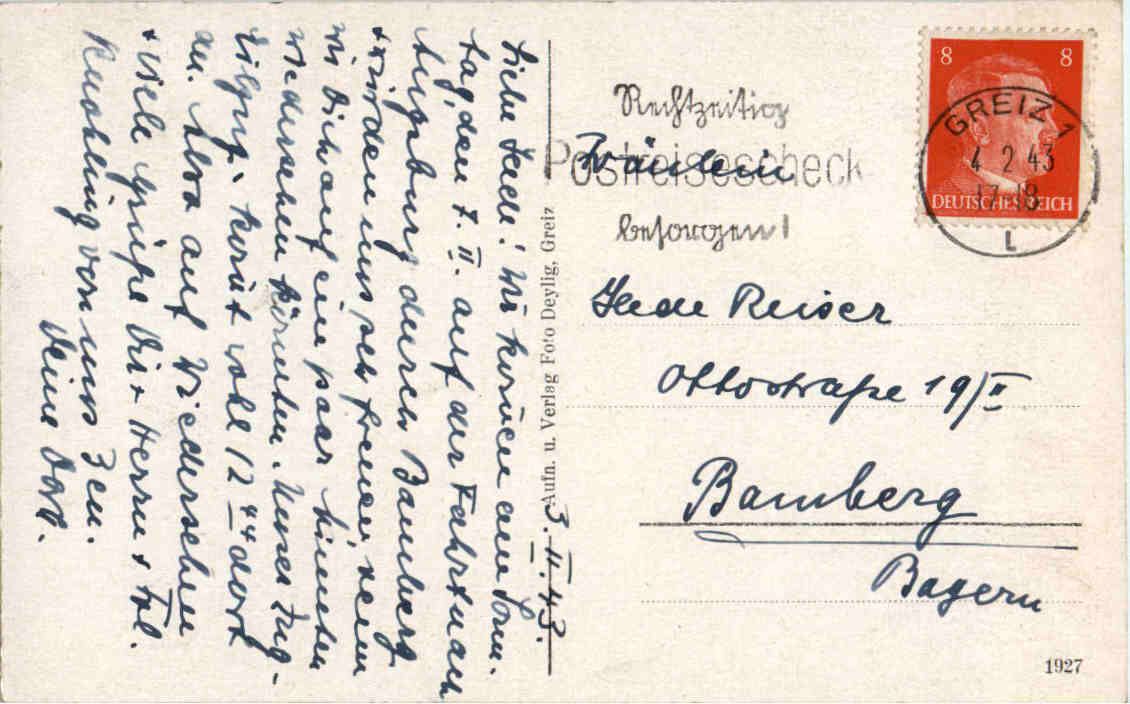 3. II. 43.
Liebe Hede! Wir kommen am Sonn-
tag, den 7. II. auf der Fahrt nach
Augsburg durch Bamberg
+ würden uns sehr freuen, wenn
wir Dich auf ein paar Minuten
wiedersehen könnten. Unser Zug -
Eilzug - kommt wohl 12 44 dort
an. Also auf Wiedersehen
+ viele Grüße Dir + Herrn + Frl.
von uns
Deine
Aufn. u. Verlag Foto Deylig, Greiz
Rechtzeitig
Postreisescheck
besorgen!
8 8
DEUTSCHES REICH
GREIZ 1
4. 2. 43
17-18
L
Fräulein
Hede Reiser
Ottostraße 19/II
Bamberg
Bayern
1927